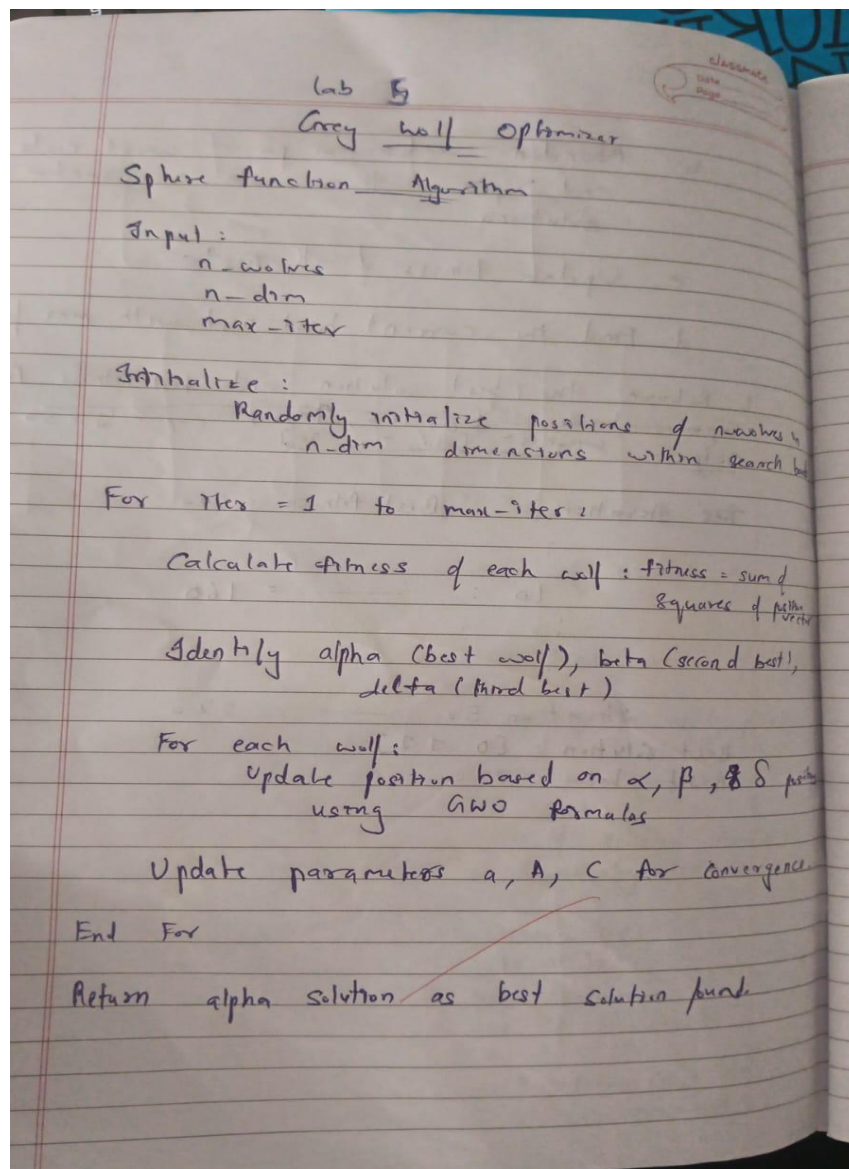 classmate
Date
Page
Lab 5
Grey wolf Optimizer
Sphere function Algorithm
Input :
n-wolves
n-dim
max-iter
Initialize :
Randomly initialize positions of n-wolves in
n-dim dimensions within search
For iter = 1 to max-iter :
Calculate fitness of each wolf : fitness = sum of
squares of position
vector
Identify alpha (best wolf), beta (second best),
delta (third best)
For each wolf :
Update position based on α, β, δ
using GWO formulas
Update parameters a, A, C for convergence.
End For
Return alpha solution as best solution found.